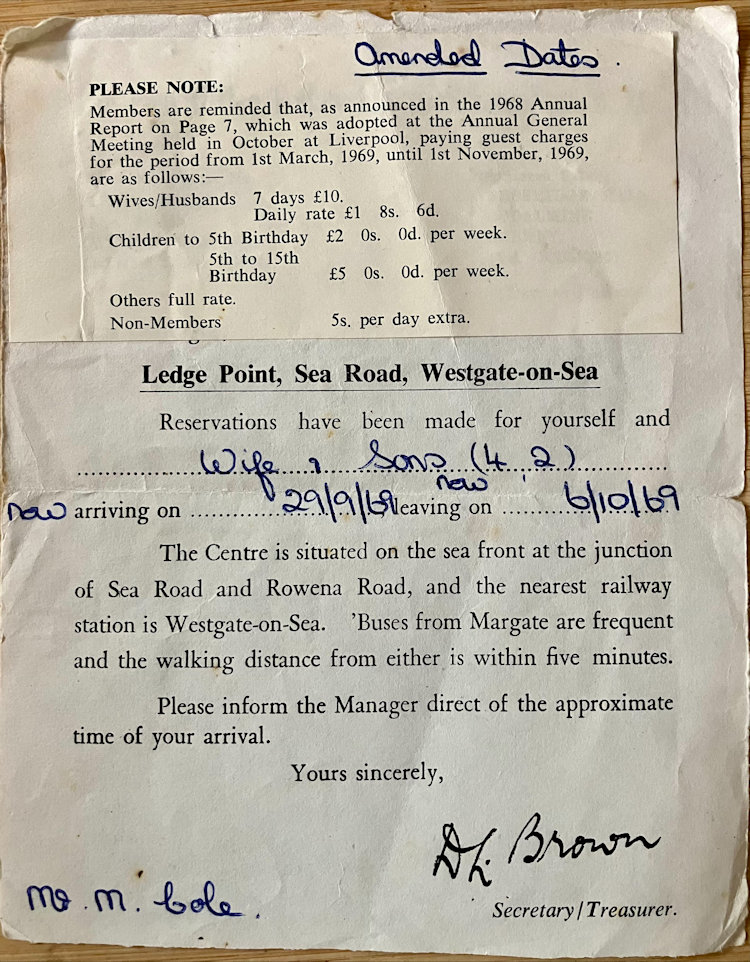 Amended Dates.
PLEASE NOTE:
Members are reminded that, as announced in the 1968 Annual
Report on Page 7, which was adopted at the Annual General
Meeting held in October at Liverpool, paying guest charges
for the period from 1st March, 1969, until 1st November, 1969,
are as follows:—
Wives/Husbands 7 days £10.
Daily rate £1 8s. 6d.
Children to 5th Birthday £2 0s. 0d. per week.
5th to 15th
Birthday £5 0s. 0d. per week.
Others full rate.
Non-Members 5s. per day extra.
Ledge Point, Sea Road, Westgate-on-Sea
Reservations have been made for yourself and
Wife, Sons (4, 2)
now
now arriving on 29/9/69 leaving on 6/10/69
The Centre is situated on the sea front at the junction
of Sea Road and Rowena Road, and the nearest railway
station is Westgate-on-Sea. 'Buses from Margate are frequent
and the walking distance from either is within five minutes.
Please inform the Manager direct of the approximate
time of your arrival.
Yours sincerely,
D L. Brown
Mr. M. Cole.
Secretary/Treasurer.